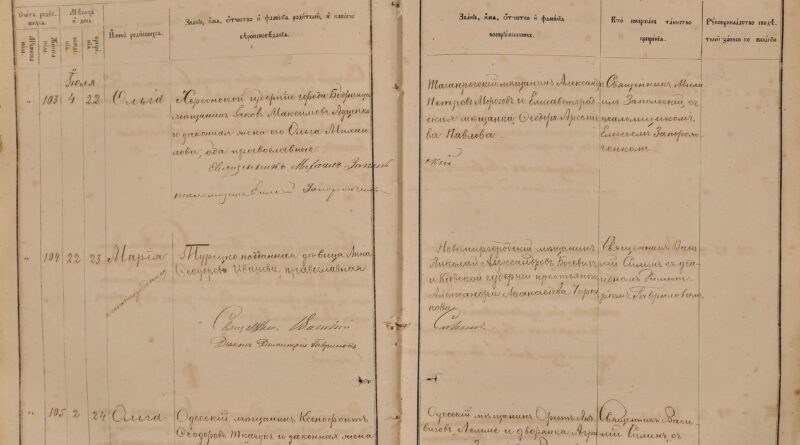 Счетъ родив-
шихся.
Мѣсяцъ
и день.
Имена родившихся.
Званіе, имя, отчество и фамилія родителей, и какого
вѣроисповѣданія.
Званіе, имя, отчество и фамилія
воспріемниковъ.
Кто совершалъ таинство
крещенія.
Рукоприкладство свидѣ-
телей записи по желанію.
Іюля
103 4 22 Ольга
Херсонской губерніи города Бобринца
мѣщанинъ Іаковъ Максимовъ
и законная жена его Ольга Михай-
лова, оба православные
Священникъ Михаилъ
псаломщикъ Елисей
Таганрогскій мѣщанинъ Александръ
Петровъ Морозовъ и Елисаветград-
ская мѣщанка, Ѳеодора Арсені-
ва Павлова.
Священникъ Миха-
илъ Запольскій, съ
псаломщикомъ
Елисеемъ
104 22 23 Марія
незаконнорожденная
Турецко-подданная дѣвица Анна
Ѳеодорова Иванова православная
Священникъ Василій
Діаконъ Димитрій Гавриловъ
Новомиргородскій мѣщанинъ
Николай Александровъ
и Кіевской губерніи крестьянка
Александра Аѳанасіева
кова
Священникъ Васи-
лій съ діа-
кономъ Димит-
ріемъ Гавриловымъ
105 2 24 Ольга
Одесскій мѣщанинъ Ксенофонтъ
Ѳеодоровъ Ткачукъ и законная жена
Одесскій мѣщанинъ
и дворянка
Священникъ Васи-
лій съ